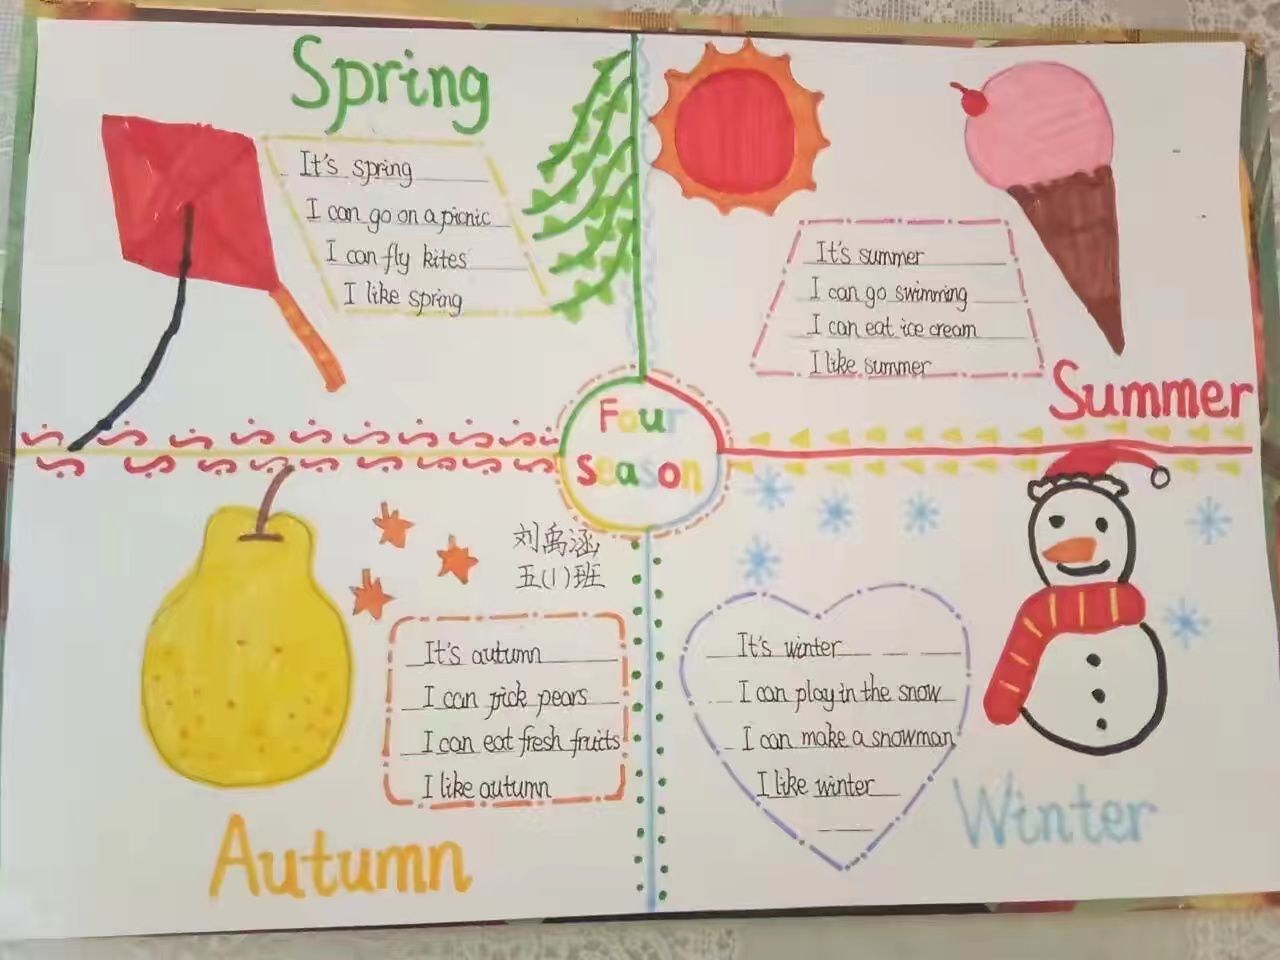 Spring
It's spring
I can go on a picnic
I can fly kites
I like spring
It's summer
I can go swimming
I can eat ice cream
I like summer
Summer
Four
season
刘禹涵
五(1)班
It's autumn
I can pick pears
I can eat fresh fruits
I like autumn
Autumn
It's winter
I can play in the snow
I can make a snowman
I like winter
Winter